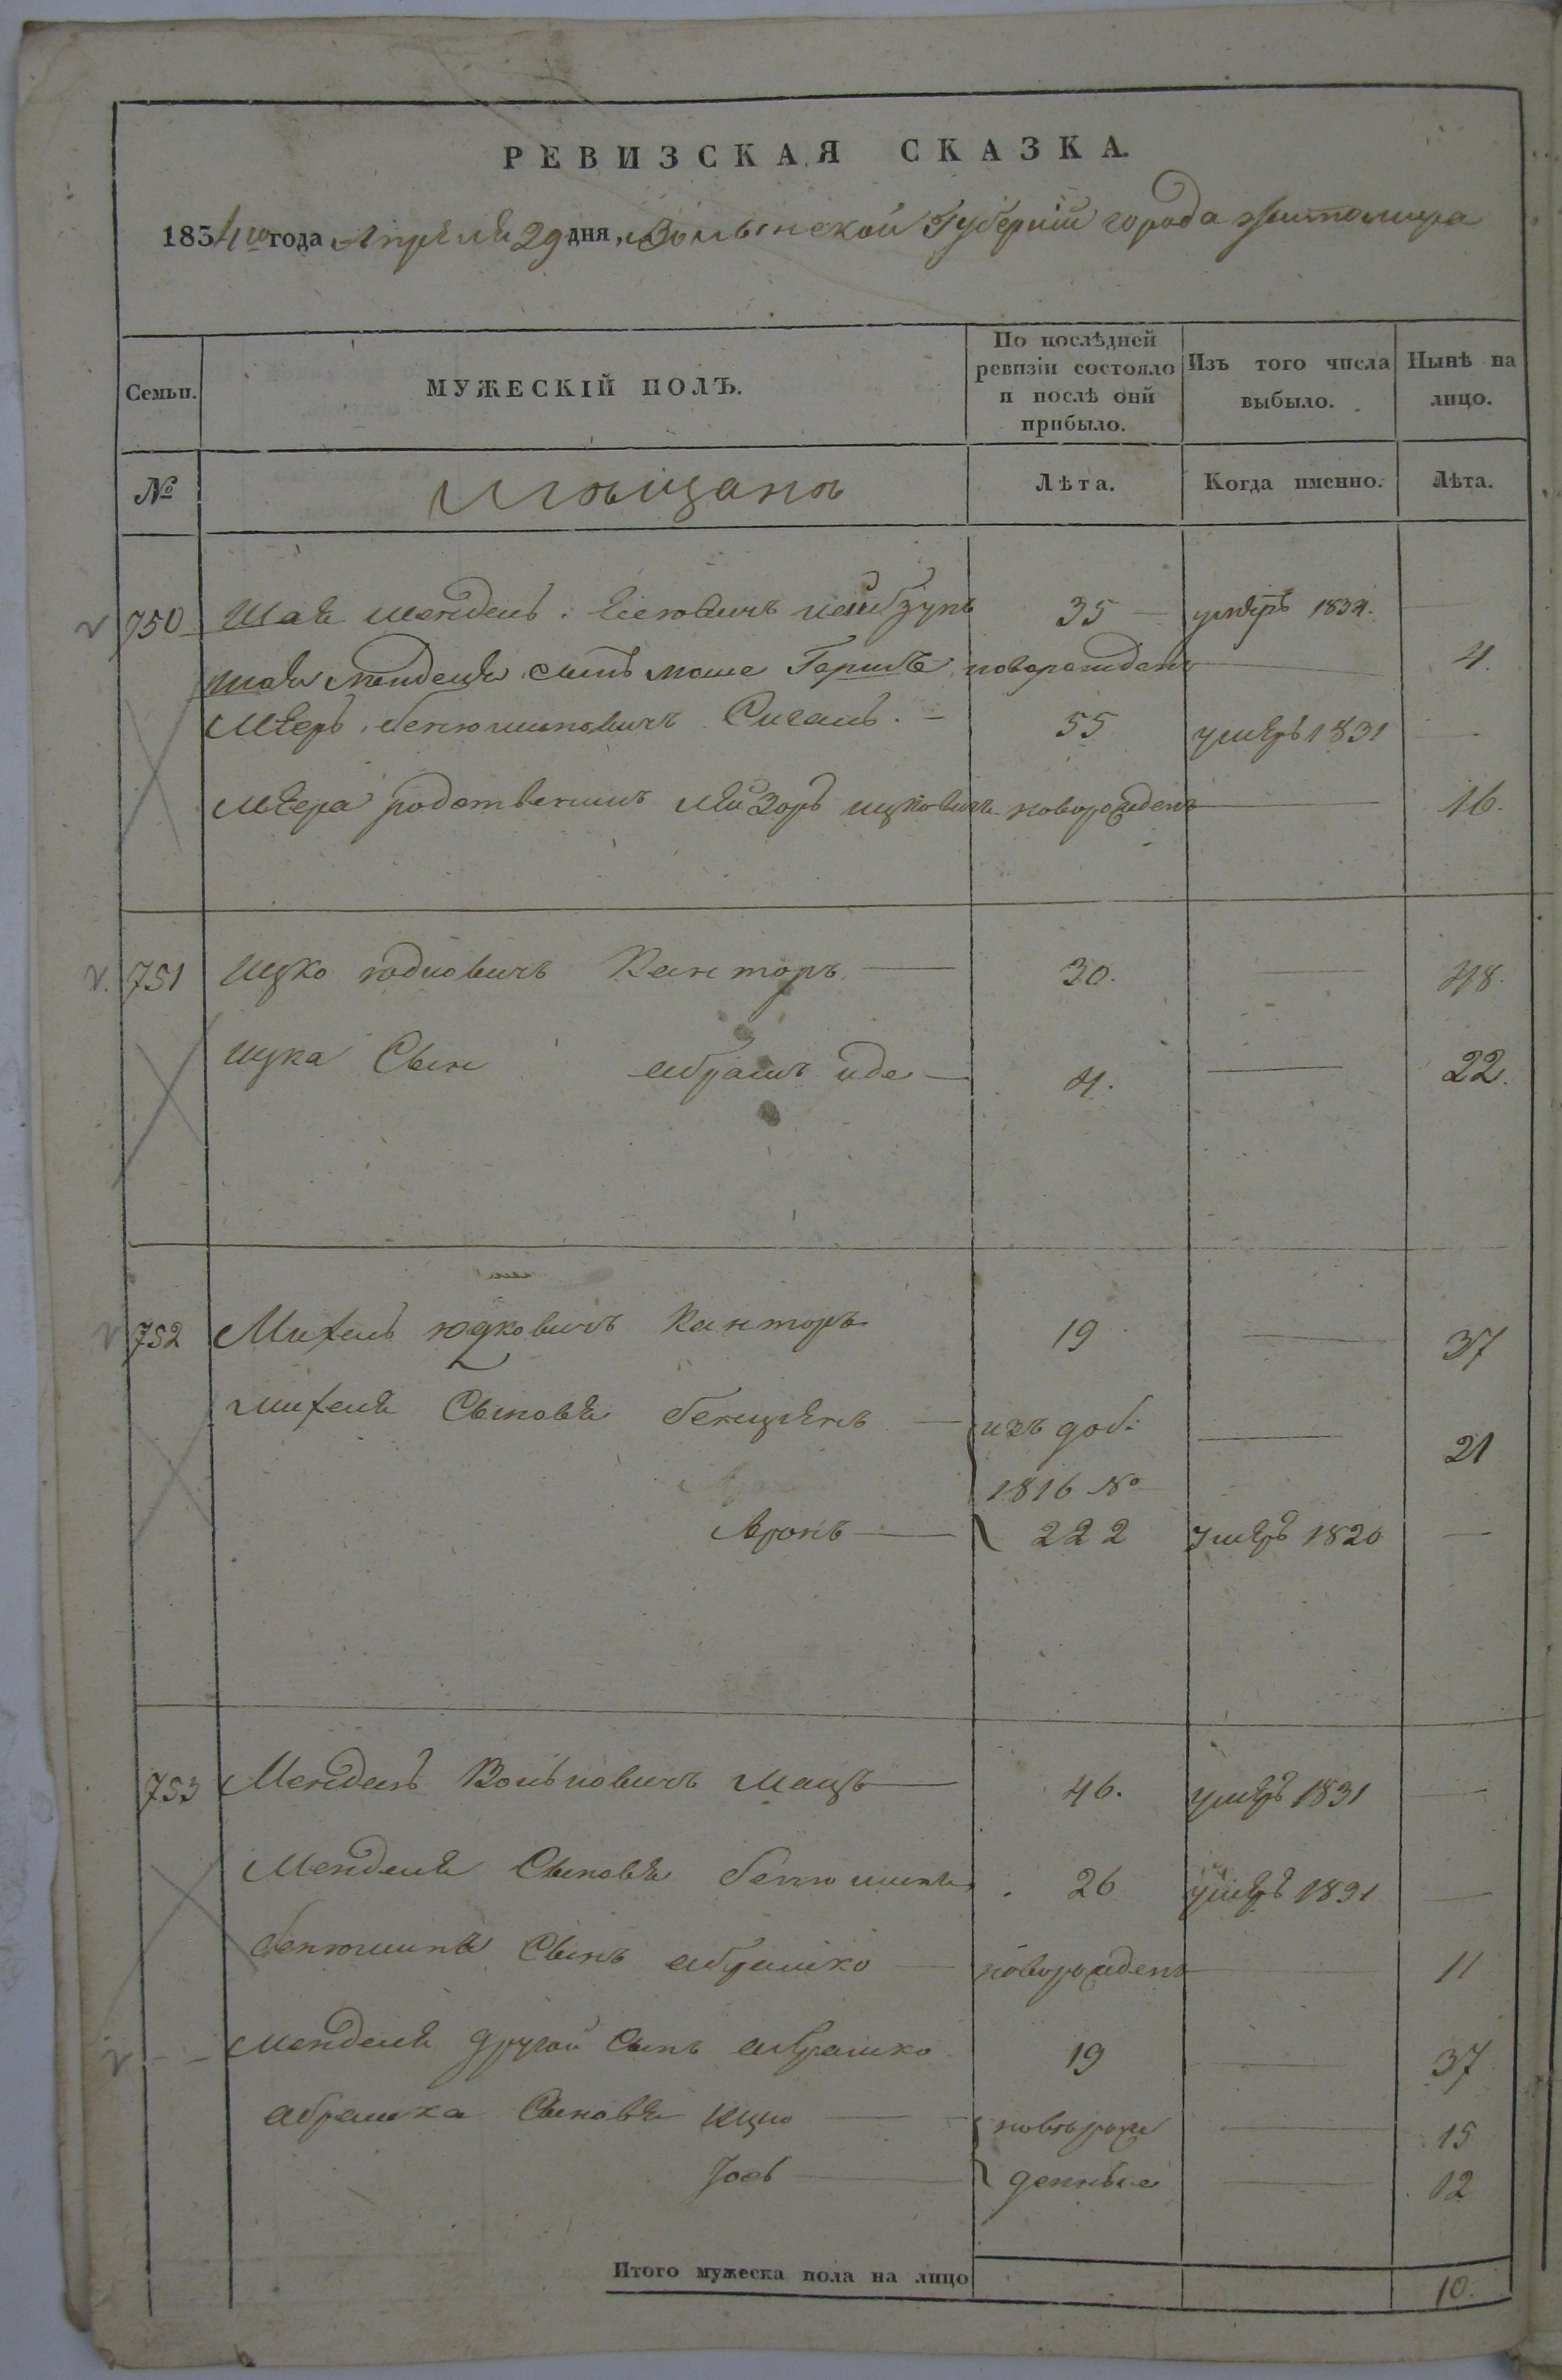 РЕВИЗСКАЯ СКАЗКА.
1834го года Апреля 29 дня, Волынской Губернии города Житомира
Семьи. МУЖЕСКІЙ ПОЛЪ. По послѣдней ревизіи состояло и послѣ оній прибыло. Изъ того числа выбыло. Нынѣ на лицо.
№ Мѣщанъ Лѣта. Когда именно. Лѣта.
750 Шая Мендель 35 — умеръ 1834. —
Шаи Менделя сынъ Моше Гершъ новорожденъ — 4.
Мееръ Бенюминовичъ 55 умеръ 1831 —
Меера родственникъ Лейзоръ Ицковичъ новорожденъ — 16.
751 Ицко Юдковичъ Канторъ — 30. — 48.
Ицка Сынъ Абрамъ — 4. — 22.
752 Михель Юдковичъ Канторъ 19 — 37
Михеля Сыновья Бенцыенъ — изъ доб: — 21
1816 №
Аронъ — 222 умеръ 1820 —
753 Мендель Вольковичъ Мацъ — 46. умеръ 1831 —
Менделя Сыновья Бенюминъ 26 умеръ 1831 —
Бенюмина Сынъ Абрамко — новорожденъ — 11
Менделя другой Сынъ Абрамко 19 — 37
Абрамка Сыновья Ицко — новорож — 15
Іось — денные — 12
Итого мужеска пола на лицо 10.